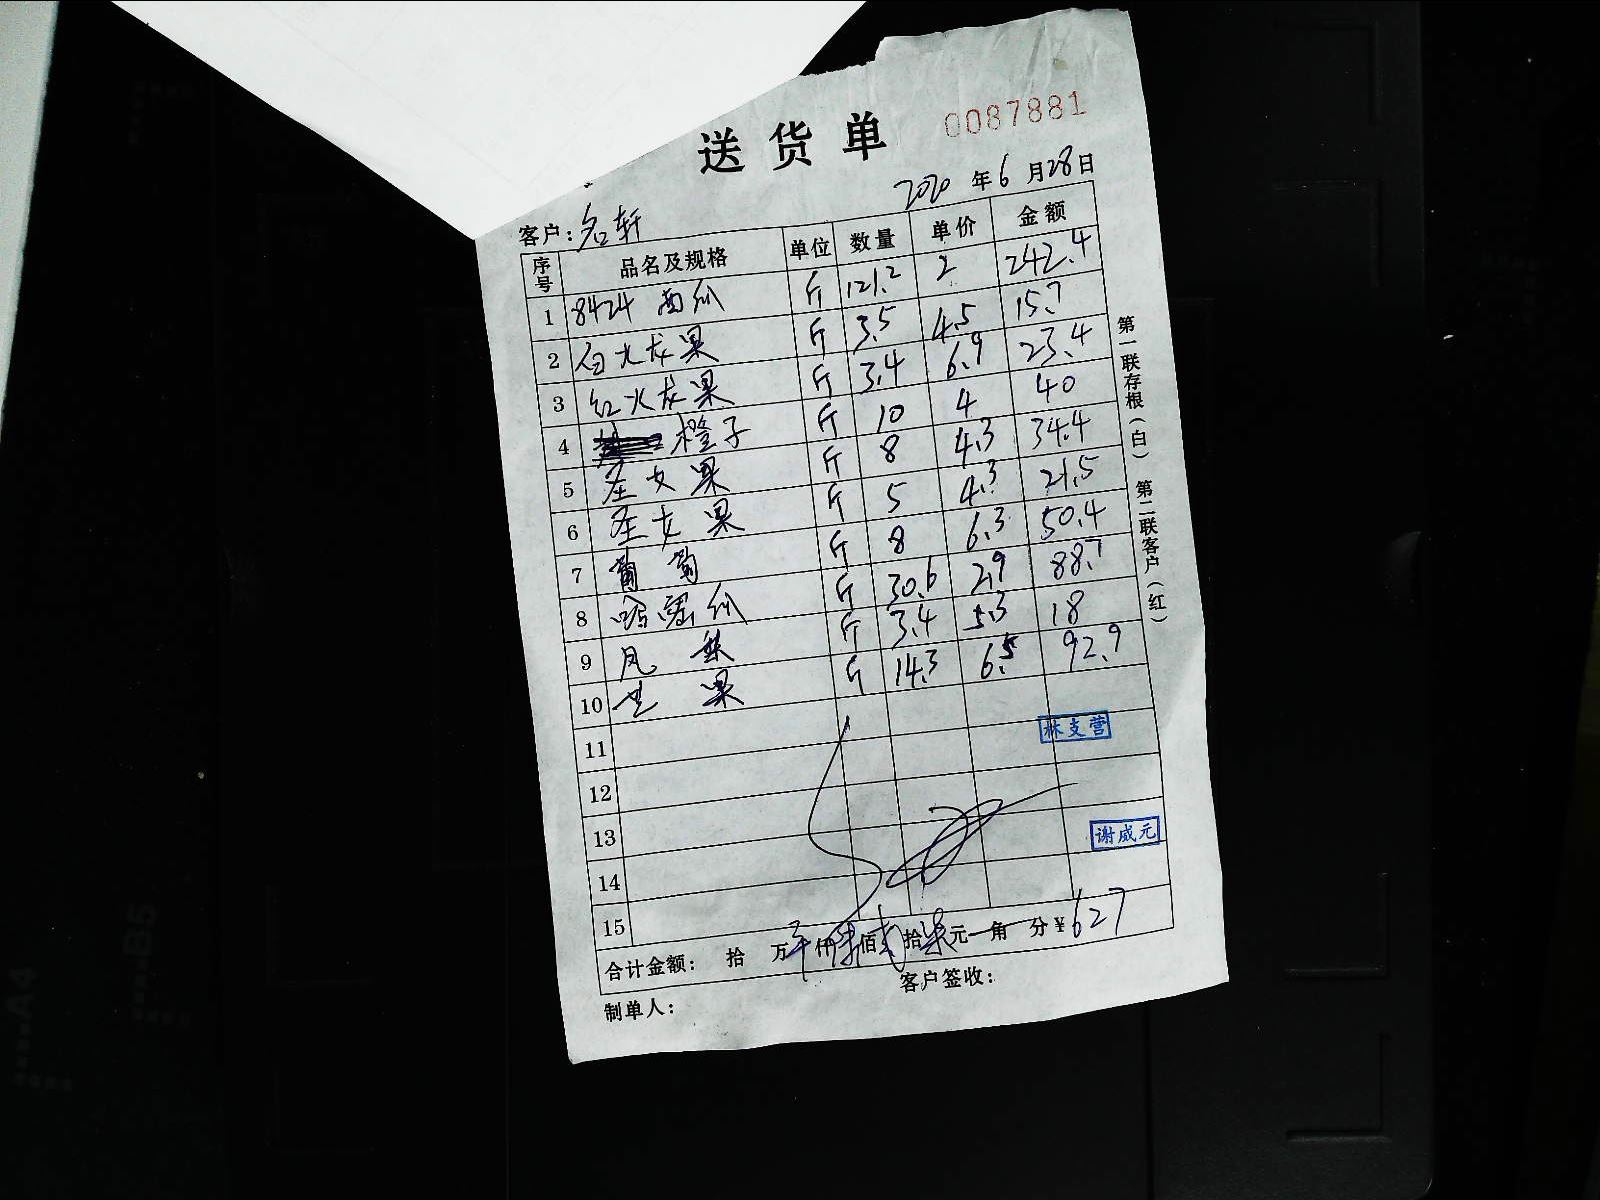 送货单 0087881
2020 年 6 月 28 日
客户: 名轩
序号 品名及规格 单位 数量 单价 金额
1 8424 西瓜 斤 121.2 2 242.4
2 白火龙果 斤 3.5 4.5 15.7
3 红火龙果 斤 3.4 6.9 23.4
4 橙子 斤 10 4 40
5 圣女果 斤 8 4.3 34.4
6 圣女果 斤 5 4.3 21.5
7 葡萄 斤 8 6.3 50.4
8 哈密瓜 斤 30.6 2.9 88.7
9 凤梨 斤 3.4 5.3 18
10 芒果 斤 14.3 6.5 92.9
11
林支营
12
13
谢威元
14
15
合计金额: 拾 万 仟 陆 佰 贰 拾 柒 元 角 分 ¥627
制单人: 客户签收:
第一联存根(白) 第二联客户(红)